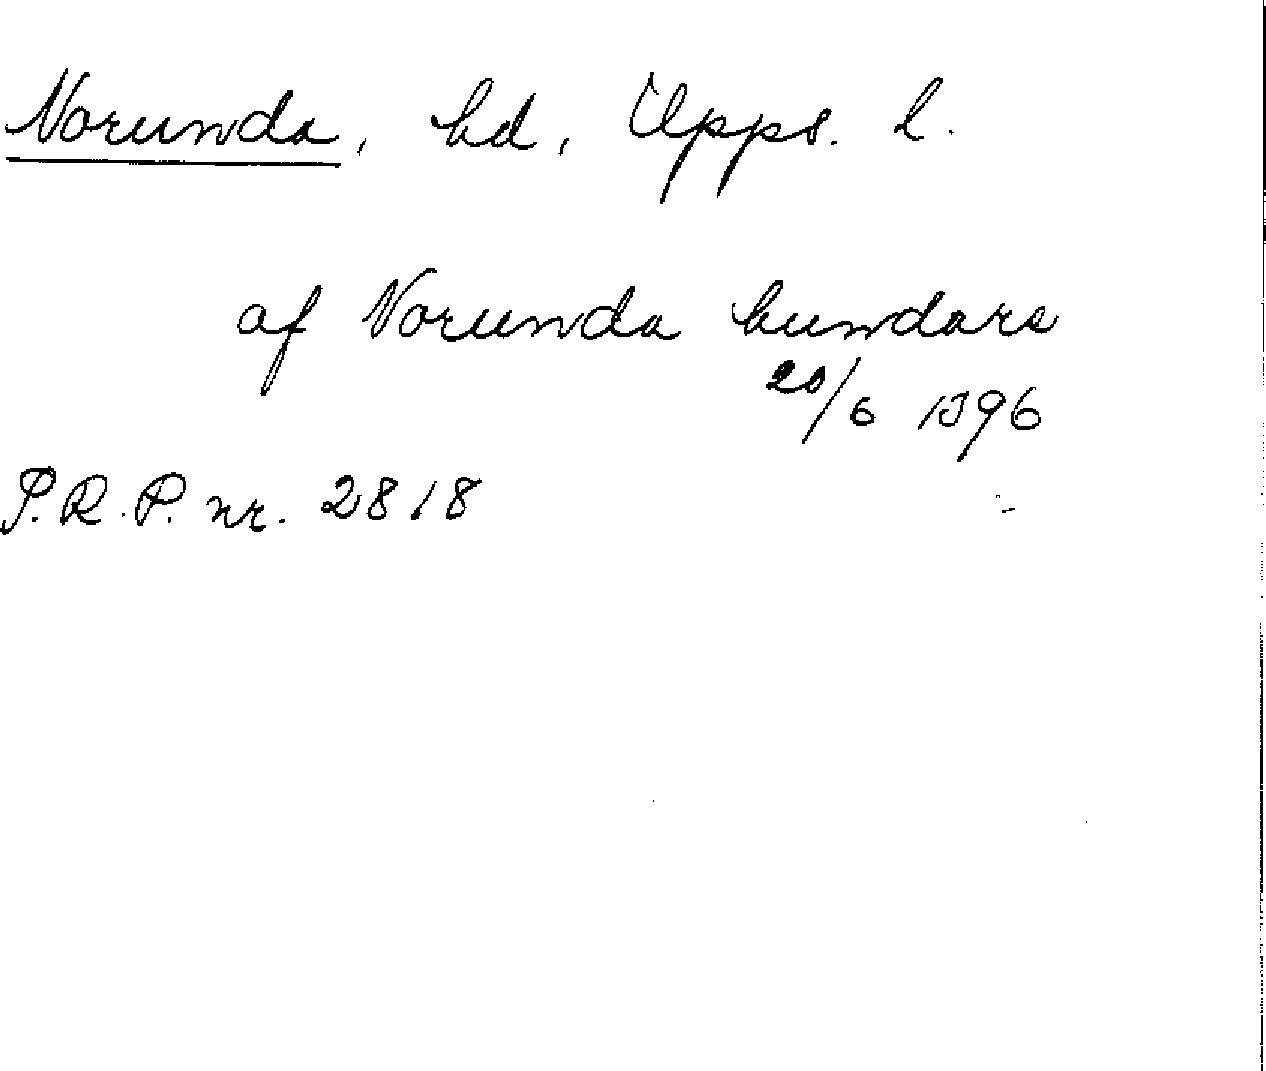 Norunda, hd, Upps. l.
af Norunda hundare
20/6 1396
P.R.P. nr. 2818